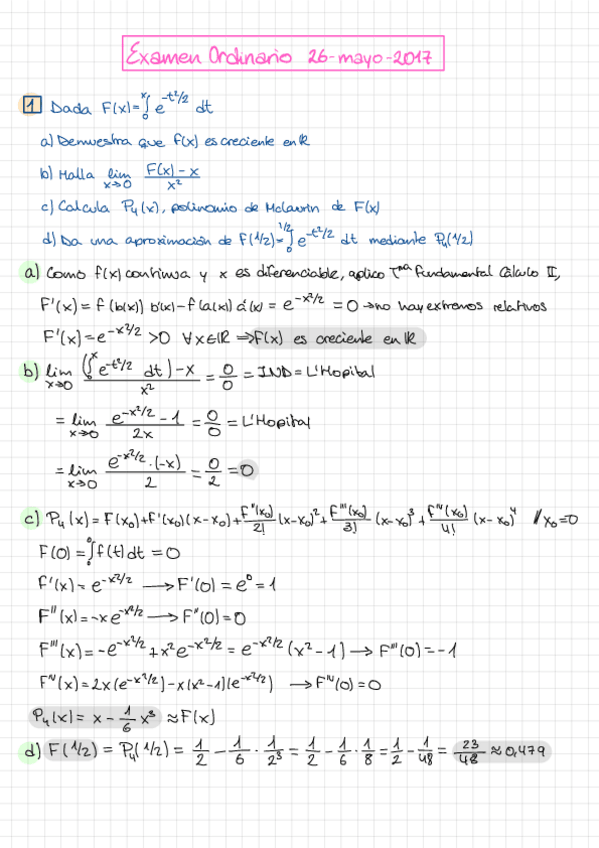 Examen Ordinario 26-mayo-2017
1 Dada F(x)=∫₀ˣ e^(-t²/2) dt
a) Demuestra que f(x) es creciente en ℝ
b) Halla lim x→0 (F(x)-x)/x²
c) Calcula P₄(x), polinomio de Mclaurin de F(x)
d) Da una aproximación de F(1/2)=∫₀^(1/2) e^(-t²/2) dt mediante P₄(1/2)
a) Como f(x) continua y x es diferenciable, aplico Tma Fundamental Cálculo II,
F'(x) = f(b(x)) b'(x) - f(a(x)) a'(x) = e^(-x²/2) = 0 → no hay extremos relativos
F'(x) = e^(-x²/2) > 0 ∀x∈ℝ ⇒ F(x) es creciente en ℝ
b) lim x→0 ((∫₀ˣ e^(-t²/2) dt) - x)/x² = 0/0 = IND = L'Hopital
= lim x→0 (e^(-x²/2) - 1)/2x = 0/0 = L'Hopital
= lim x→0 (e^(-x²/2)·(-x))/2 = 0/2 = 0
c) P₄(x) = F(x₀) + f'(x₀)(x-x₀) + f''(x₀)/2! (x-x₀)² + f'''(x₀)/3! (x-x₀)³ + f^IV(x₀)/4! (x-x₀)⁴ // x₀=0
F(0) = ∫₀⁰ f(t) dt = 0
F'(x) = e^(-x²/2) → F'(0) = e⁰ = 1
F''(x) = -xe^(-x²/2) → F''(0) = 0
F'''(x) = -e^(-x²/2) + x²e^(-x²/2) = e^(-x²/2)(x²-1) → F'''(0) = -1
F^IV(x) = 2x(e^(-x²/2)) - x(x²-1)(e^(-x²/2)) → F^IV(0) = 0
P₄(x) = x - 1/6 x³ ≈ F(x)
d) F(1/2) = P₄(1/2) = 1/2 - 1/6 · 1/2³ = 1/2 - 1/6 · 1/8 = 1/2 - 1/48 = 23/48 ≈ 0,479